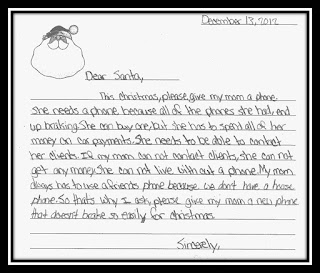 December 13, 2012
Dear Santa,
This christmas, please, give my mom a phone.
She needs a phone because all of the phones she had, end
up braking. She can buy one, but she has to spend all of her
money on car payments. She needs to be able to contact
her clients. If my mom can not contact clients, she can not
get any money. She can not live with out a phone. My mom
always has to use a friends phone because we don't have a house
phone. So that's why I ask, please give my mom a new phone
that doesn't brake so easily for christmas.
Sincerely,